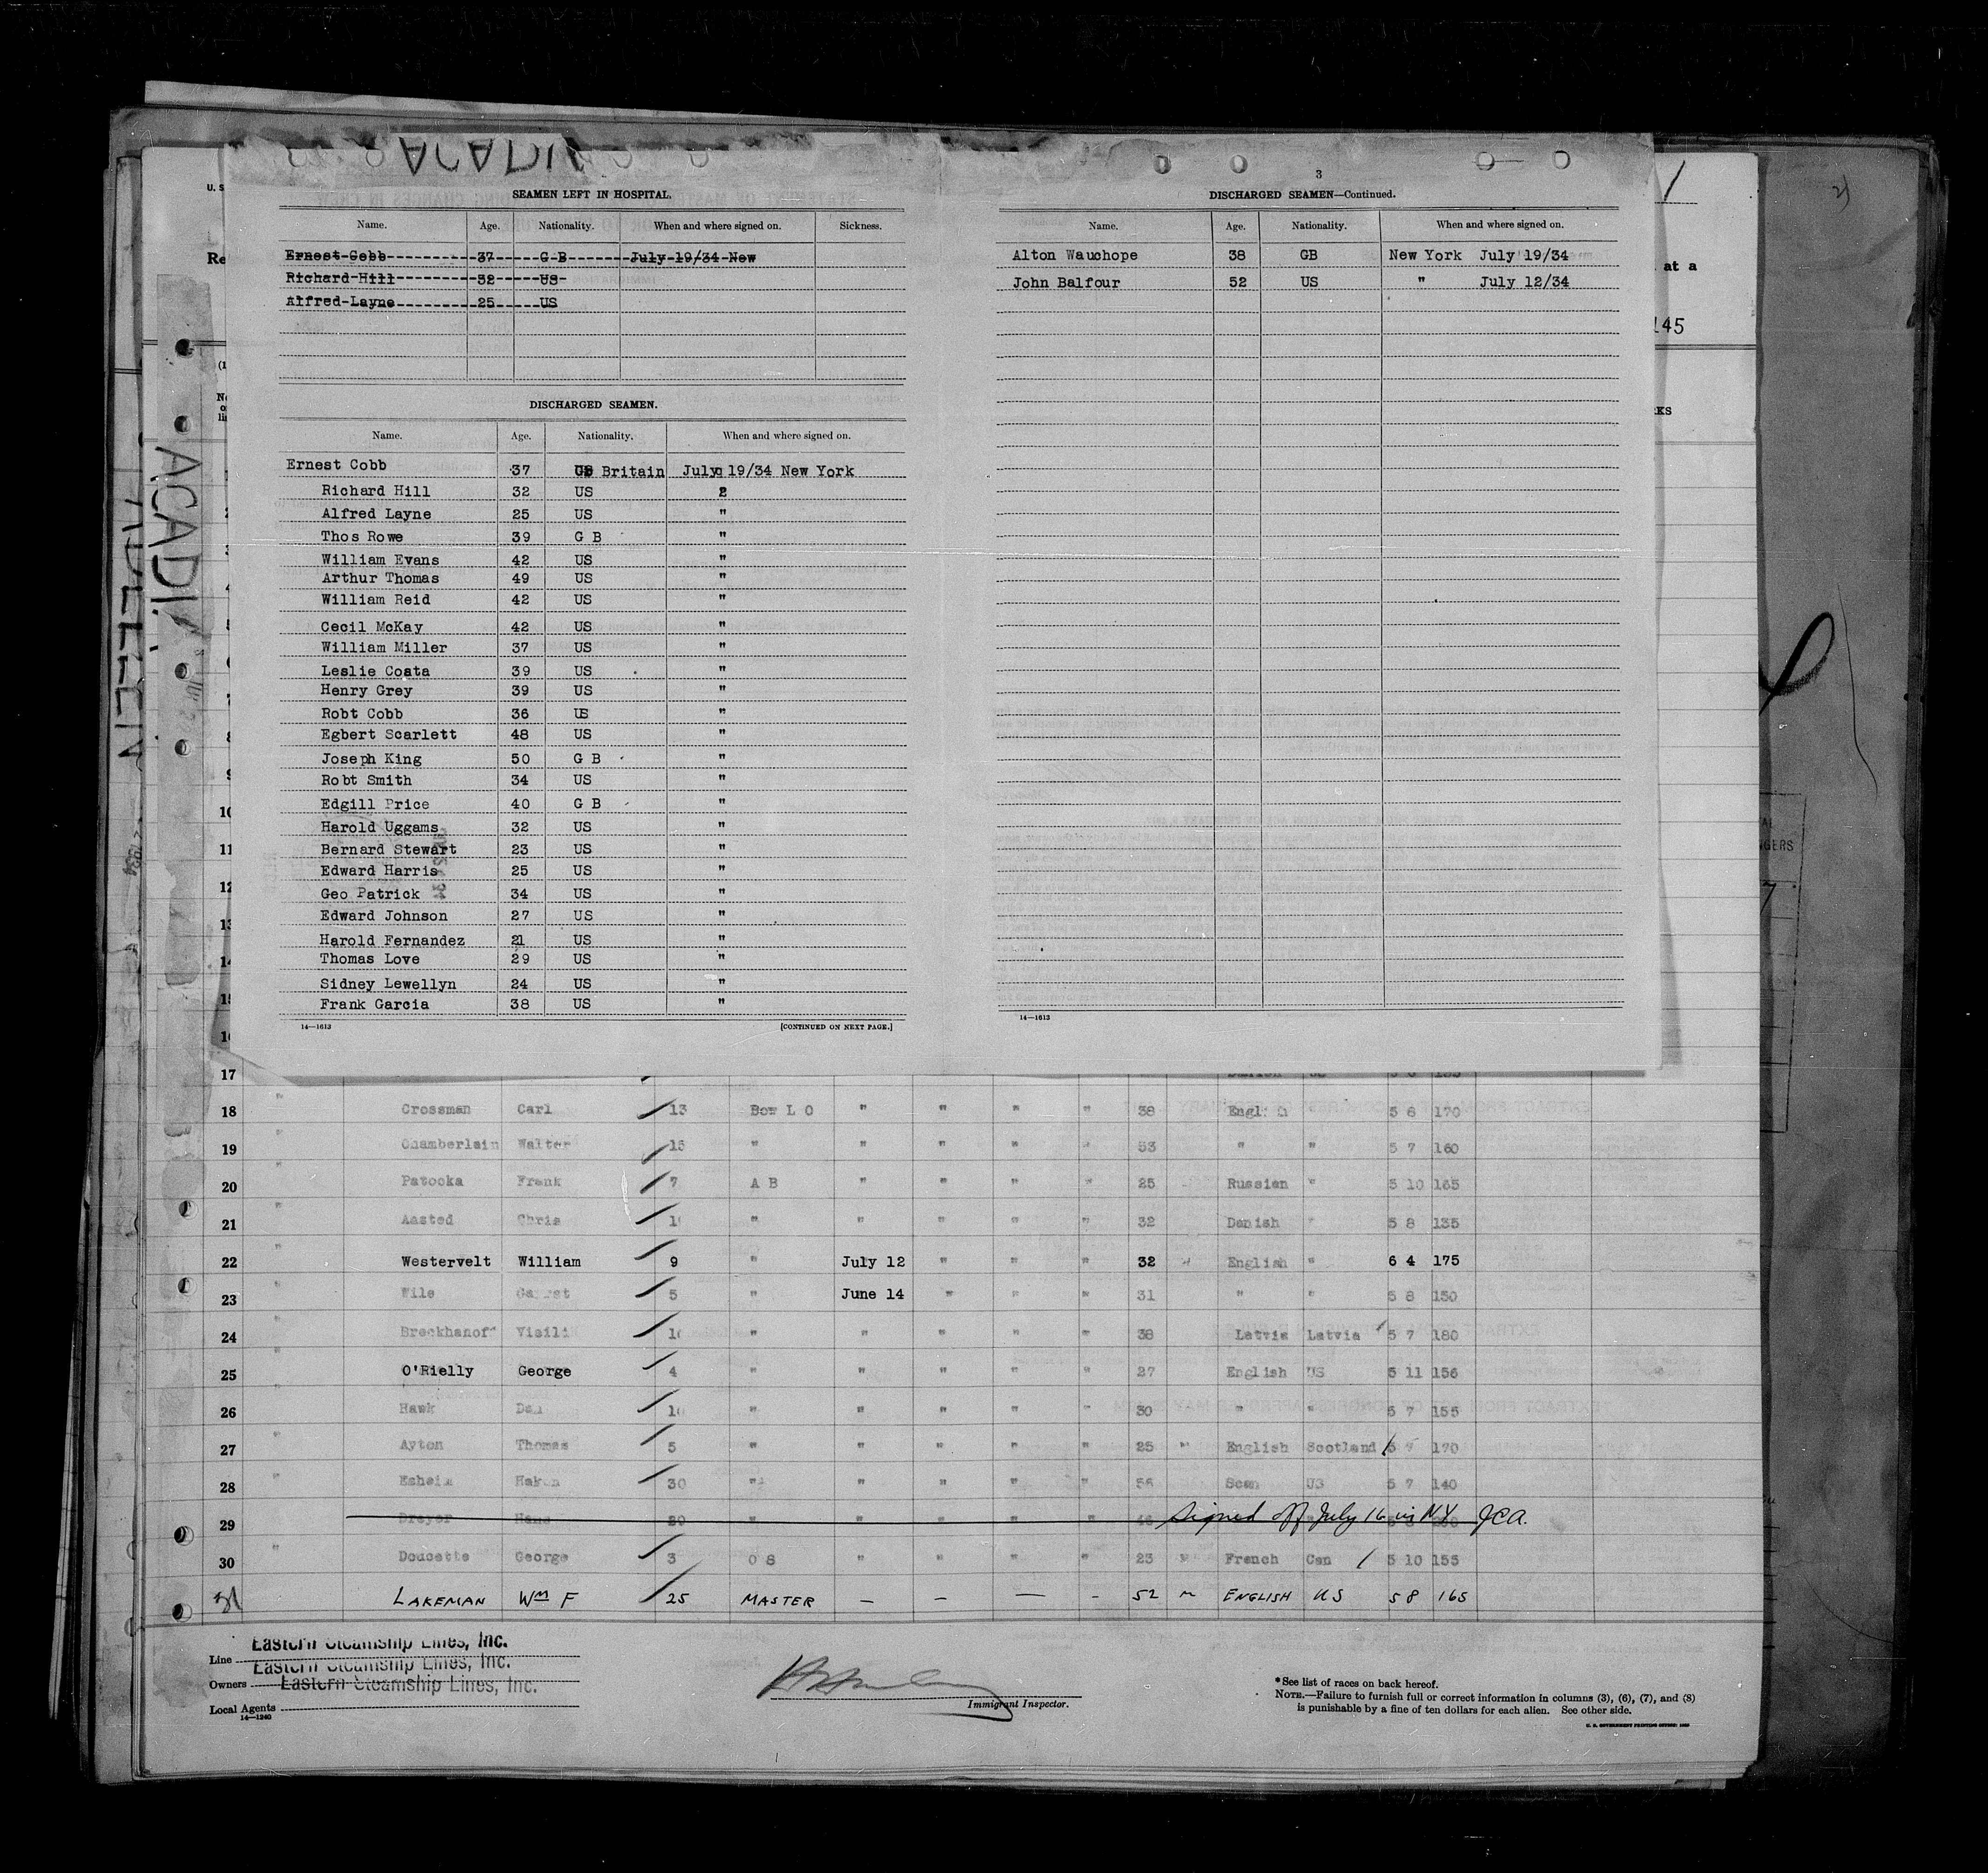 ACADIA
SEAMEN LEFT IN HOSPITAL.
Name. Age. Nationality. When and where signed on. Sickness.
Ernest Cobb 37 G B July 19/34 New
Richard Hill 32 US
Alfred Layne 25 US
DISCHARGED SEAMEN.
Name. Age. Nationality. When and where signed on.
Ernest Cobb 37 Britain July 19/34 New York
Richard Hill 32 US 2
Alfred Layne 25 US "
Thos Rowe 39 G B "
William Evans 42 US "
Arthur Thomas 49 US "
William Reid 42 US "
Cecil McKay 42 US "
William Miller 37 US "
Leslie Coata 39 US "
Henry Grey 39 US "
Robt Cobb 36 US "
Egbert Scarlett 48 US "
Joseph King 50 G B "
Robt Smith 34 US "
Edgill Price 40 G B "
Harold Uggams 32 US "
Bernard Stewart 23 US "
Edward Harris 25 US "
Geo Patrick 34 US "
Edward Johnson 27 US "
Harold Fernandez 21 US "
Thomas Love 29 US "
Sidney Lewellyn 24 US "
Frank Garcia 38 US "
14—1613 [CONTINUED ON NEXT PAGE.]
3
DISCHARGED SEAMEN—Continued.
Name. Age. Nationality. When and where signed on.
Alton Wauchope 38 GB New York July 19/34
John Balfour 52 US " July 12/34
14—1613
U. S
Re
at a
145
KS
ACADIA
10
11
12
13
14
15
16
17
18 " Crossman Carl 13 Bow L O " " " " 38 English 5 8 170
19 " Chamberlain Walter 15 " " " " " 53 " " 5 7 160
20 " Patocka Frank 7 A B " " " " 25 Russian " 5 10 165
21 " Aasted Chris " " " " " 32 Danish " 5 8 135
22 " Westervelt William 9 " July 12 " " " 32 " English " 6 4 175
23 " Wile 5 " June 14 " " " 31 " " 5 8 150
24 " Breckhanoff Visili " " " " " 38 Latvia Latvia 5 7 180
25 " O'Rielly George 4 " " " " " 27 English US 5 11 156
26 " Hawk Dan " " " " " 30 " " 5 7 155
27 " Ayton Thomas 5 " " " " " 25 " English Scotland 170
28 " Esheim Hakon 30 " " " " " 56 Scan US 5 7 140
29 Dreyer Hans 20 " " " " " Signed off July 16 in NY JCA.
30 " Doucette George 3 O S " " " " 23 " French Can 5 10 155
31 LAKEMAN Wm F 25 MASTER — — — - 52 " ENGLISH US 5 8 165
Line Eastern Steamship Lines, Inc.
Owners Eastern Steamship Lines, Inc.
Local Agents Eastern Steamship Lines, Inc.
14—1240
Immigrant Inspector.
*See list of races on back hereof.
NOTE.—Failure to furnish full or correct information in columns (3), (6), (7), and (8)
is punishable by a fine of ten dollars for each alien. See other side.